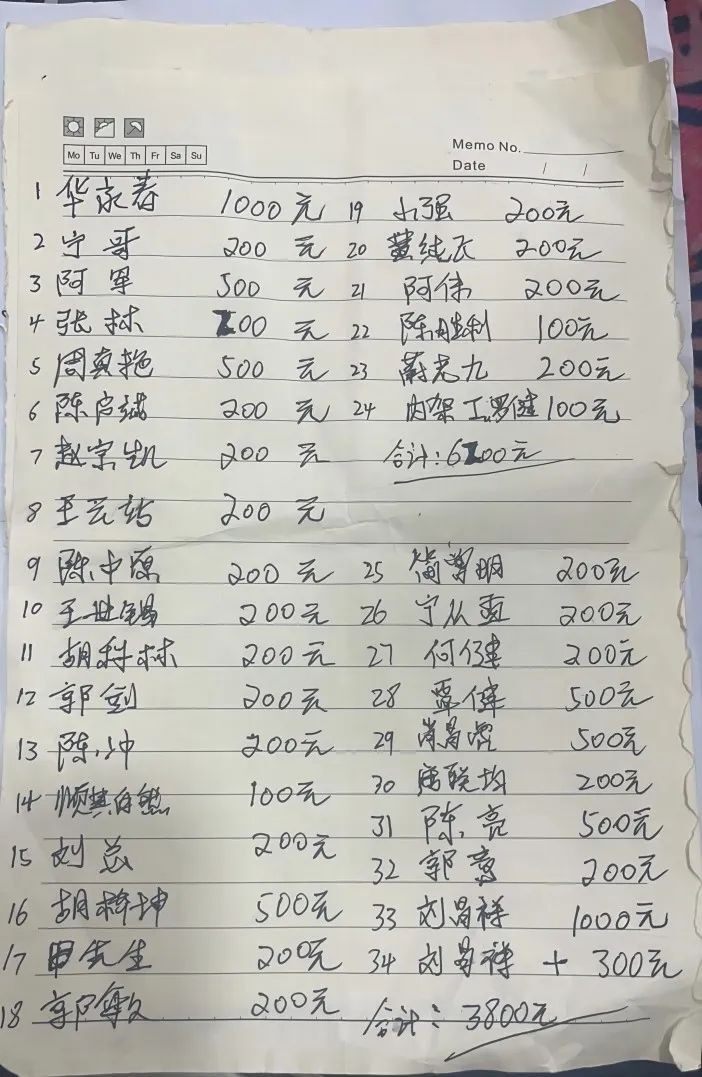 Mo Tu We Th Fr Sa Su
Memo No.
Date / /
1 华永春 1000元
2 宁哥 200元
3 阿军 500元
4 张林 200元
5 周真艳 500元
6 陈启斌 200元
7 赵宗凯 200元
8 王兴站 200元
9 陈中源 200元
10 王世锡 200元
11 胡科林 200元
12 郭剑 200元
13 陈冲 200元
14 顺其自然 100元
15 刘总 200元
16 胡梓坤 500元
17 田先生 200元
18 郭敏 200元
19 小强 200元
20 黄纯飞 200元
21 阿伟 200元
22 陈胜利 100元
23 蔚老九 200元
24 内架工罗健 100元
合计:6200元
25 简 明 200元
26 宁从 200元
27 何健 200元
28 覃伟 500元
29 肖昌 500元
30 唐联均 200元
31 陈亮 500元
32 郭 200元
33 刘昌祥 1000元
34 刘昌祥 + 300元
合计:3800元